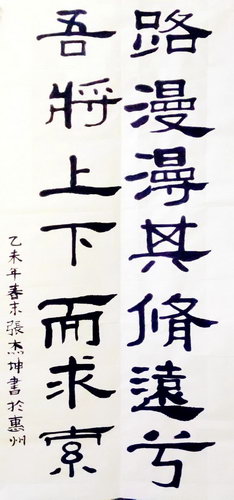 路漫漫其脩遠兮
吾將上下而求索
乙未年春末張杰坤書於惠州